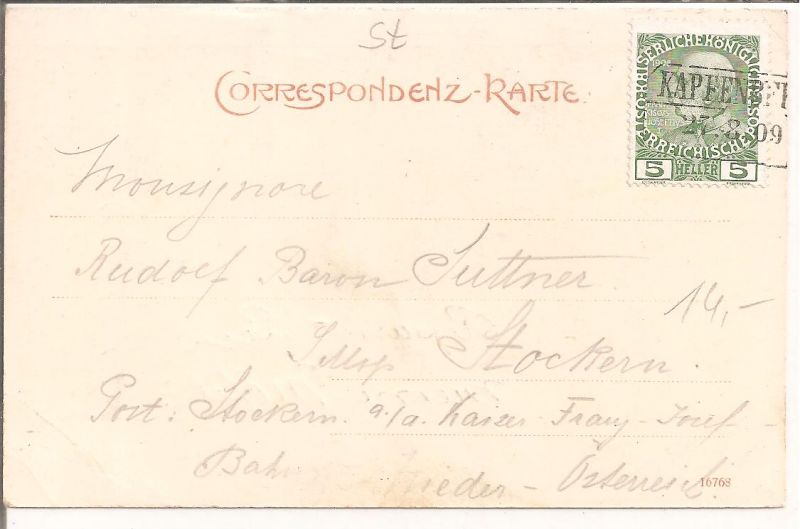 St
CORRESPONDENZ-KARTE.
KAISERLICHE KÖNIGLICHE
ÖSTERREICHISCHE POST
5 HELLER 5
KAPFEN
27.8.09
Monsignore
Rudolf Baron Suttner
14,-
Stockern
Post: Stockern a/a. Kaiser Franz-Josef-
Bahn
Nieder-Österreich.
16768